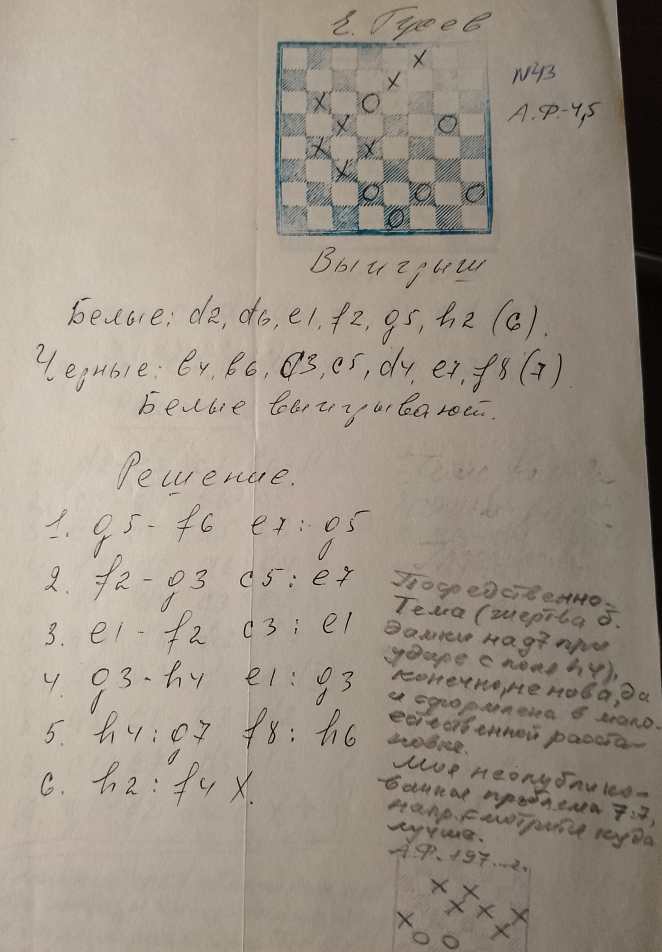 Е. Гуоев
N43
А.Ф.-4,5
Выигрыш
Белые: d2, d6, e1, f2, g5, h2 (6).
Черные: в4, в6, c3, c5, d4, e7, f8 (7)
Белые выигрывают.
Решение.
1. g5 - f6 e7 : g5
2. f2 - g3 c5 : e7
3. e1 - f2 c3 : e1
4. g3 - h4 e1 : g3
5. h4 : g7 f8 : h6
6. h2 : f4 X.
Посредственно.
Тема (жертва б.
дамки на g7 при
ударе с поля h4),
конечно, не нова, да
и оформлена в мало-
естественной расста-
новке.
Моя неопублико-
ванная проблема 7:7,
напр. смотрится куда
лучше.
А.Ф. 197...г.